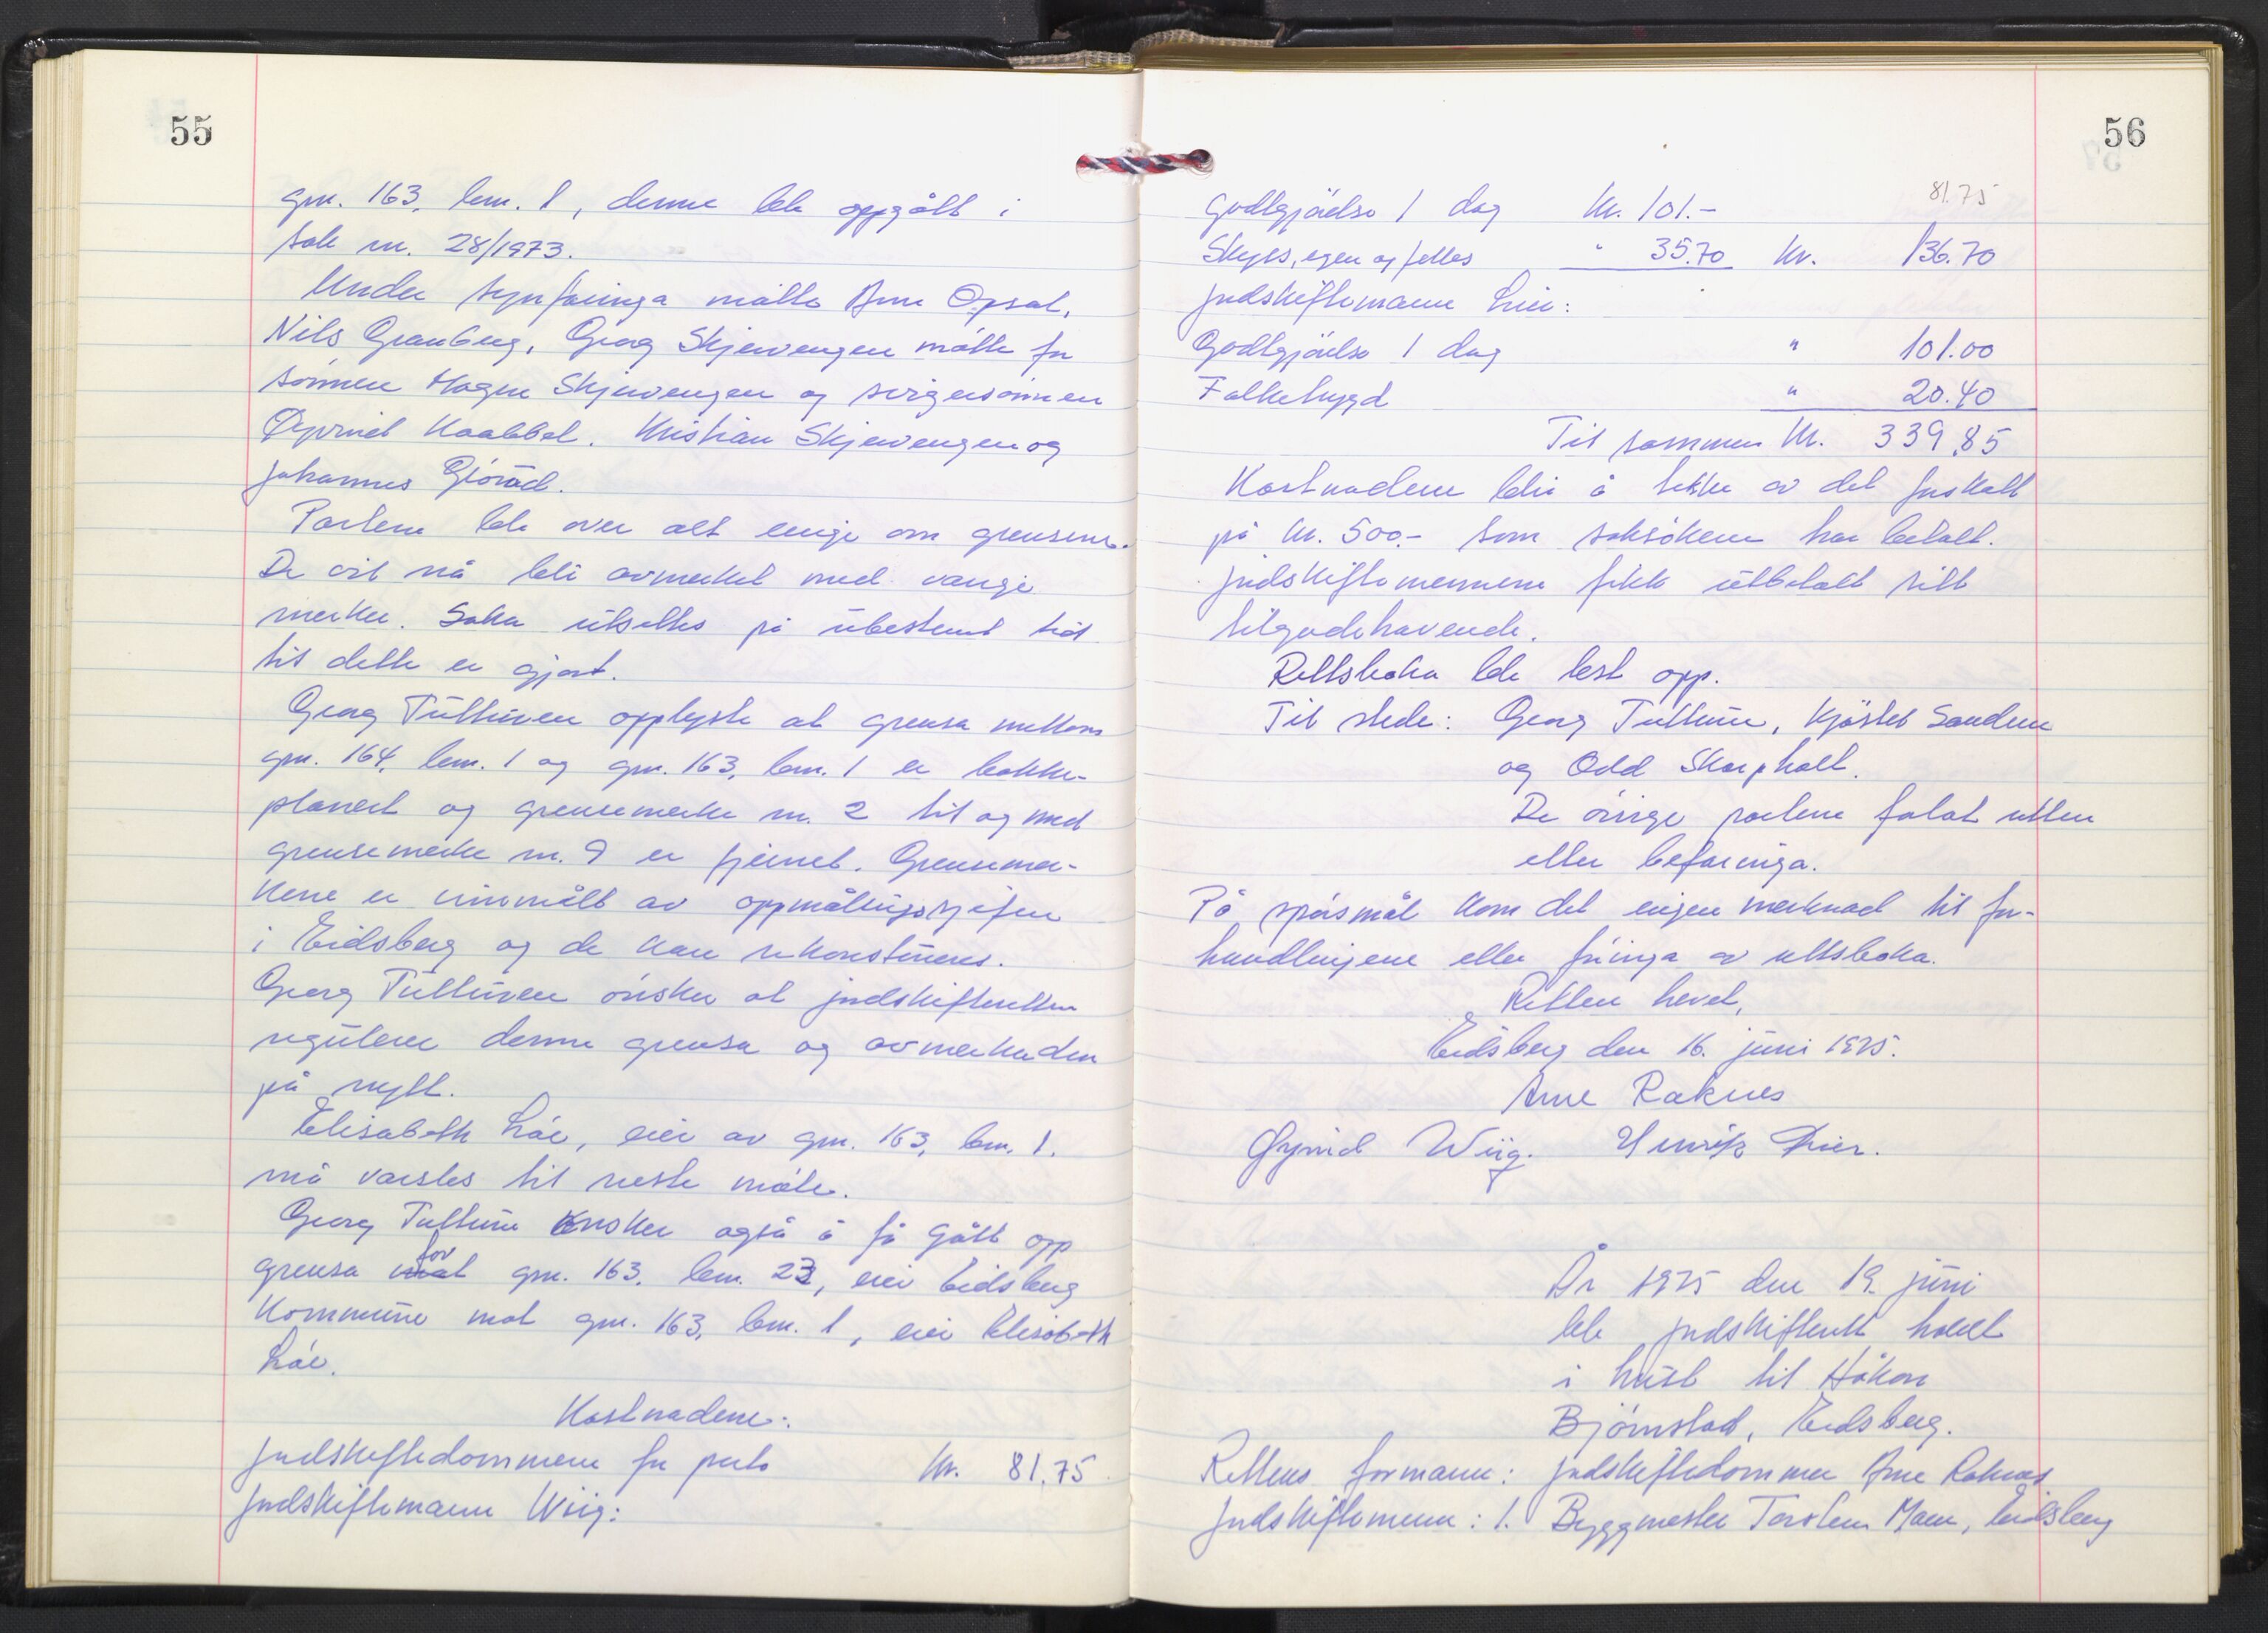 55
gnr. 163, bnr. 1, denne ble oppgått i
sak nr. 28/1973.
Under synfaringa møtte Arne Opsal,
Nils Granberg, Georg Skjervengen møtte for
sønnen Magne Skjervengen og svigersønnen
Øyvind Kaabbel. Kristian Skjervengen og
Johannes Gjörud.
Partene ble over alt enige om grensene.
De vil nå bli avmerket med vanlige
merker. Saka utsettes på ubestemt tid
til dette er gjort.
Georg Tutturen opplyste at grensa mellom
gnr. 164, bnr. 1 og gnr. 163, bnr. 1 er bakke-
planert og grensemerke nr. 2 til og med
grensemerke nr. 9 er fjernet. Grensemer-
kene er innmålt av oppmålingssjefen
i Eidsberg og de kan rekonstrueres.
Georg Tutturen ønsker at jordskifteretten
regulerer denne grensa og avmerker den
på nytt.
Elisabeth Löe, eier av gnr. 163, bnr. 1.
må varsles til neste møte.
Georg Tutturen ønsker også å få gått opp
grensa mot for gnr. 163, bnr. 23, eier Eidsberg
Kommune mot gnr. 163, bnr. 1, eier Elisabeth
Löe.
Kostnadene:
Jordskiftedommeren for porto kr. 81.75
Jordskiftemann Wiig:
56
81.75
Godtgjørelse 1 dag kr. 101.-
Skyss, egen og felles " 35.70 kr. 136.70
Jordskiftemann Lier:
Godtgjørelse 1 dag " 101.00
Folketrygd " 20.40
Til sammen kr. 339.85
Kostnadene blir å dekke av det forskott
på kr. 500.- som saksøkeren har betalt.
Jordskiftemennene fikk utbetalt sitt
tilgodehavende.
Rettsboka ble lest opp.
Til stede: Georg Tutturen, Kjöstel Sandem
og Odd Skarpholt.
De øvrige partene forlot retten
etter befaringa.
På spørsmål kom det ingen merknad til for-
handlingene eller føringa av rettsboka.
Retten hevet,
Eidsberg den 16. juni 1975.
Arne Raknes
Øyvind Wiig. Henrik Lier.
År 1975 den 19. juni
ble jordskifterett holdt
i huset til Håkon
Björnstad, Eidsberg.
Rettens formann: Jordskiftedommer Arne Raknes
Jordskiftemenn: 1. Byggmester Torstein Moen, Eidsberg